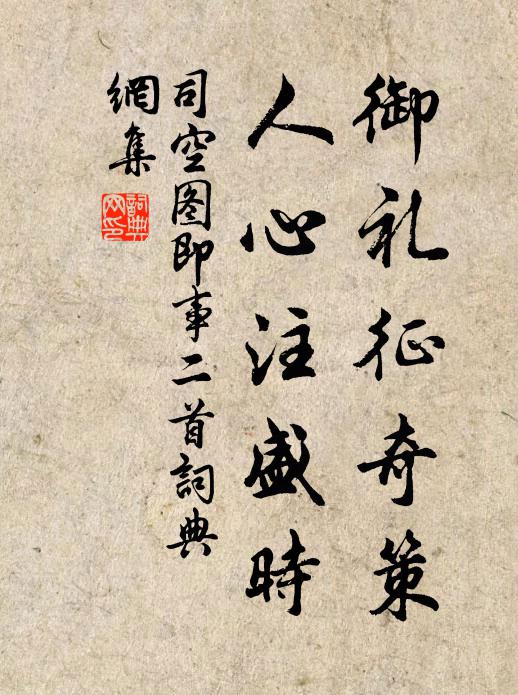 御礼征奇策
人心注盛時
司空图即事二首詞典
網集
詞典
网印